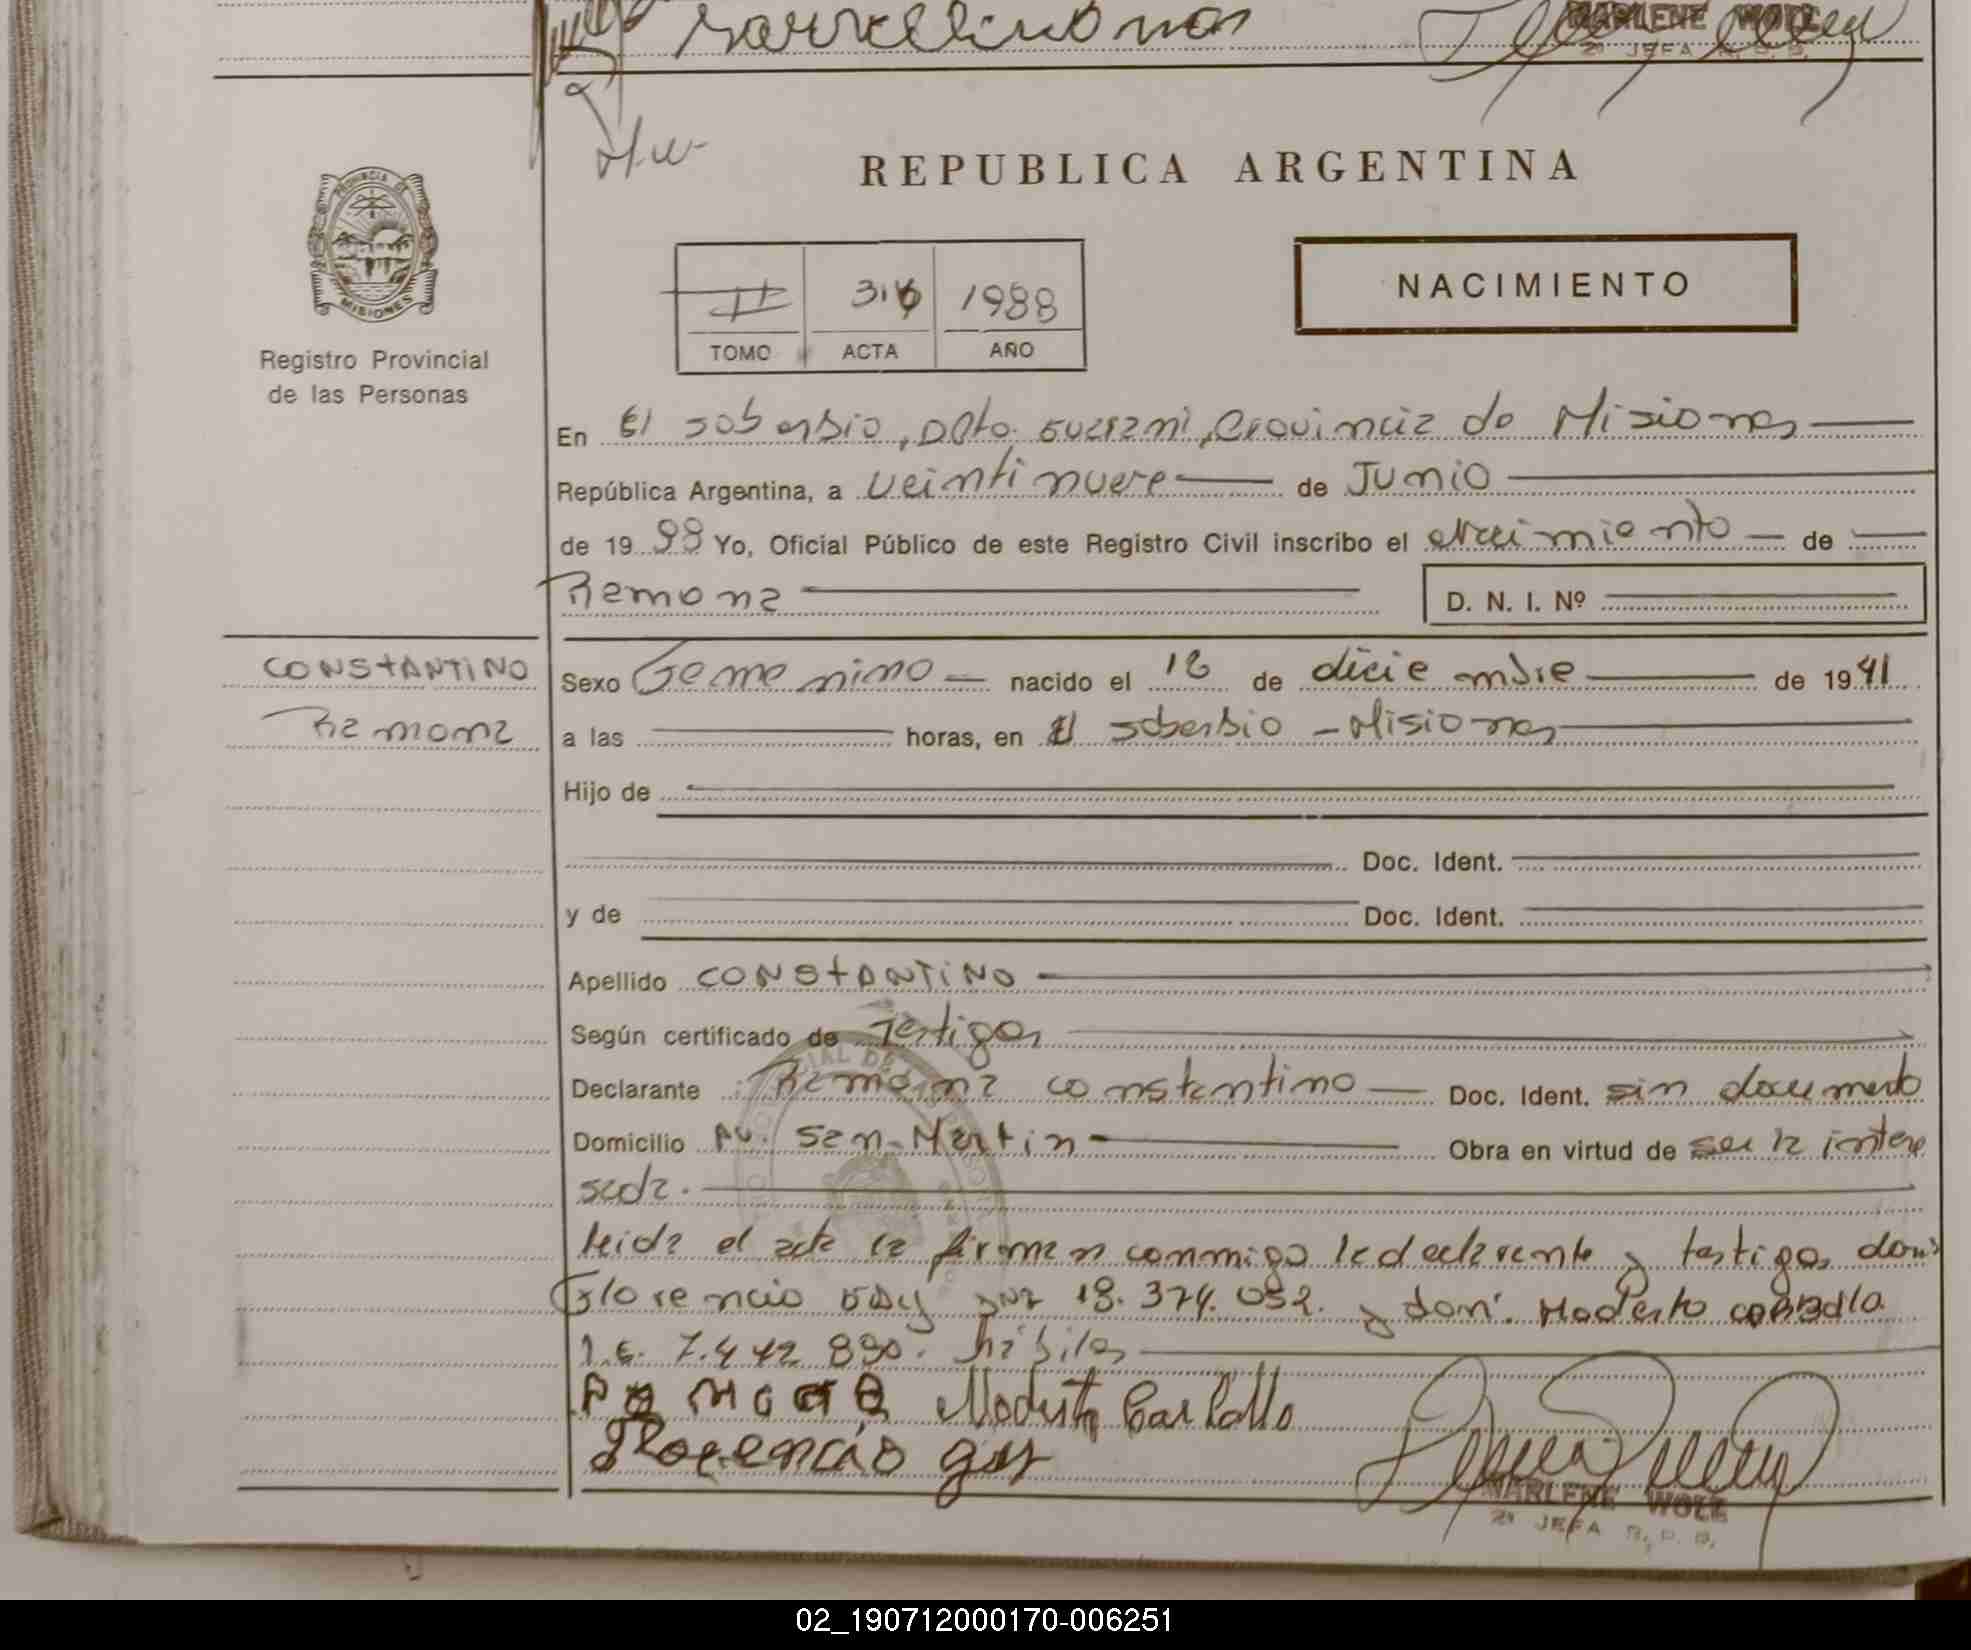 Marcelino
MARLENE WOLL
2ª JEFA R. P. P.
REPUBLICA ARGENTINA
PROVINCIA DE
MISIONES
Registro Provincial
de las Personas
II 316 1988
TOMO ACTA AÑO
NACIMIENTO
En El soberbio, Dpto. Guarani, Provincia de Misiones
República Argentina, a veintinueve de Junio
de 19 88 Yo, Oficial Público de este Registro Civil inscribo el Nacimiento de
Ramona D. N. I. Nº
CONSTANTINO
Ramona
Sexo Femenino nacido el 18 de diciembre de 19 41
a las horas, en El soberbio - Misiones
Hijo de
Doc. Ident.
y de Doc. Ident.
Apellido CONSTANTINO
Según certificado de Testigos
Declarante Ramona constantino Doc. Ident. sin documento
Domicilio Av. San Martin Obra en virtud de ser la intere
sada.
leida el acta la firman conmigo la declarante y testigos don
Florencio 18.374.052. y don Modesto carballo
L.E. 7.442 890. hábiles
RAMONA Modesto Carballo
Florencio
MARLENE WOLL
2ª JEFA R. P. P.
02_190712000170-006251